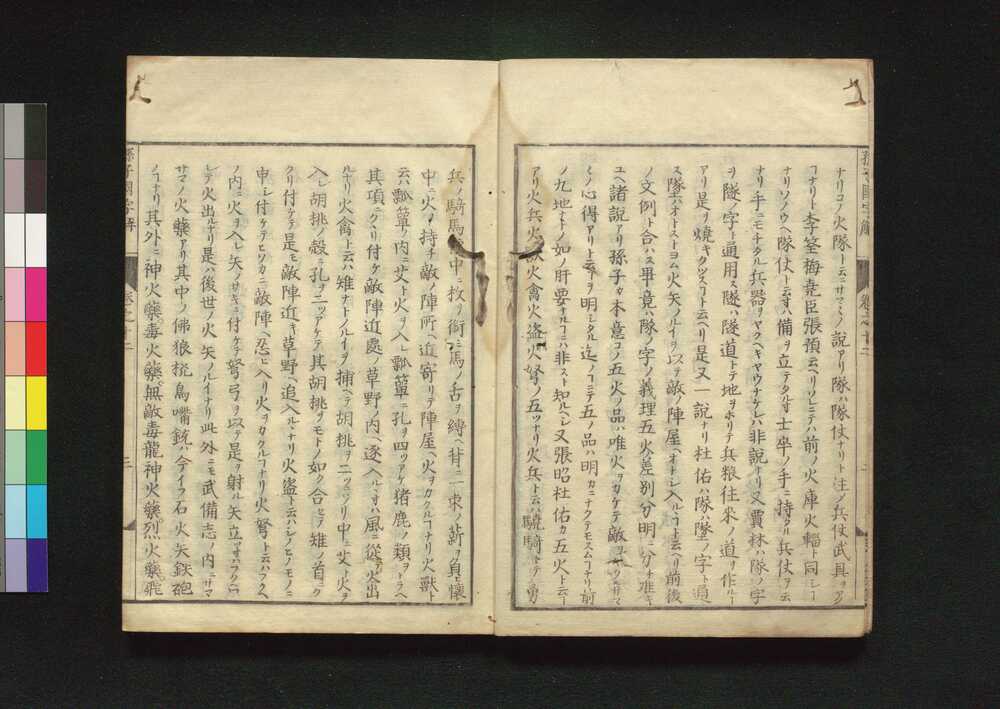 ナリコノ火隊ト云ニサマ〱ノ説アリ隊ハ隊仗ナリト注ノ兵仗武具ヲ
ナリト李筌梅堯臣張預云ヘリソレニテハ前ノ火庫火輜ト同シ
ナリソノウヘ隊仗ト云ヿハ備ヲ立テタル士卒ノ手ニ持タル兵仗ヲ云
ナリ手ニモチタル兵器ヲヤクヘキヤウナケレハ非説ナリ又賈林ハ隊ノ字
ヲ隧ノ字ト通用ス隧ハ隧道トテ地ヲホリテ兵粮往来ノ道ヲ作ル
アリ是ヲ焼キクツスヿト云ヘリ是又一説ナリ杜佑ハ隊ハ墜ノ字ト通
ス墜ハオトストヨム火矢ノルイヲ以テ敵ノ陣屋ヘオトシ入ルヽヿト云ヘリ前後
ノ文例ト合ハス畢竟ハ隊ノ字ノ義理五火ノ差別分明ニ分チ難キ
ユヘ諸説アリ孫子カ本意コノ五火ノ品ハ唯火ヲカケテ敵
ノ心得アリト云ヿヲ明シタル迄ノヿニテ五ノ品ハ明カニナクテモスムヿナリ前
ノ九地ナトノ如ク肝要ナルヿニハ非スト知ルヘシ又張昭杜佑カ五火ト云
アリ火兵火獣火禽火盗火弩ノ五ツナリ火兵ト云ハ驍騎トテ勇
兵ノ騎馬 中ニ枚ヲ銜ミ馬ノ舌ヲ縛ヘ背ニ一束ノ薪ヲ負ヒ懐
中ニ火ヲ持チ敵ノ陣所ヘ近寄リテ陣屋ヘ火ヲカクルヿナリ火獣ト
云ハ瓢簞ノ内ニ艾ト火ヲ入レ瓢簞ニ孔ヲ四ツアケ猪鹿ノ類ヲトラヘ
其項ニクヽリ付ケ敵陣近處ノ草野ノ内ヘ逐入ルヽヿハ風ニ從テ火出
ルナリ火禽ト云ハ雉ナトノルイヲ捕ヘテ胡桃ヲ二ツニワリ中ニ艾ト火ヲ
入レ胡桃ノ殻ニ孔ヲ二ツアケテ其胡桃ヲモトノ如ク合セテ雉ノ首ニク
クリ付ケテ是モ敵陣近キ草野ヘ追入ルヽナリ火盗ト云ハシノヒノモノニ
申シ付ケテヒソカニ敵陣ヘ忍ヒ入リ火ヲカクルヿナリ火弩ト云ハフクヘ
ノ内ニ火ヲ入レ矢ノサキニ付ケテ弩弓ヲ以テ是ヲ射ル矢立ツヿハフクヘワ
レテ火出ルナリ是ハ後世ノ火矢ノルイナリ此外ニモ武備志ノ内ニサマ
サマノ火藥アリ其中ノ佛狼機鳥嘴銃ハ今イフ石火矢鉄砲
ノヿナリ其外ニ神火藥毒火藥無敵毒龍神火藥烈火藥飛